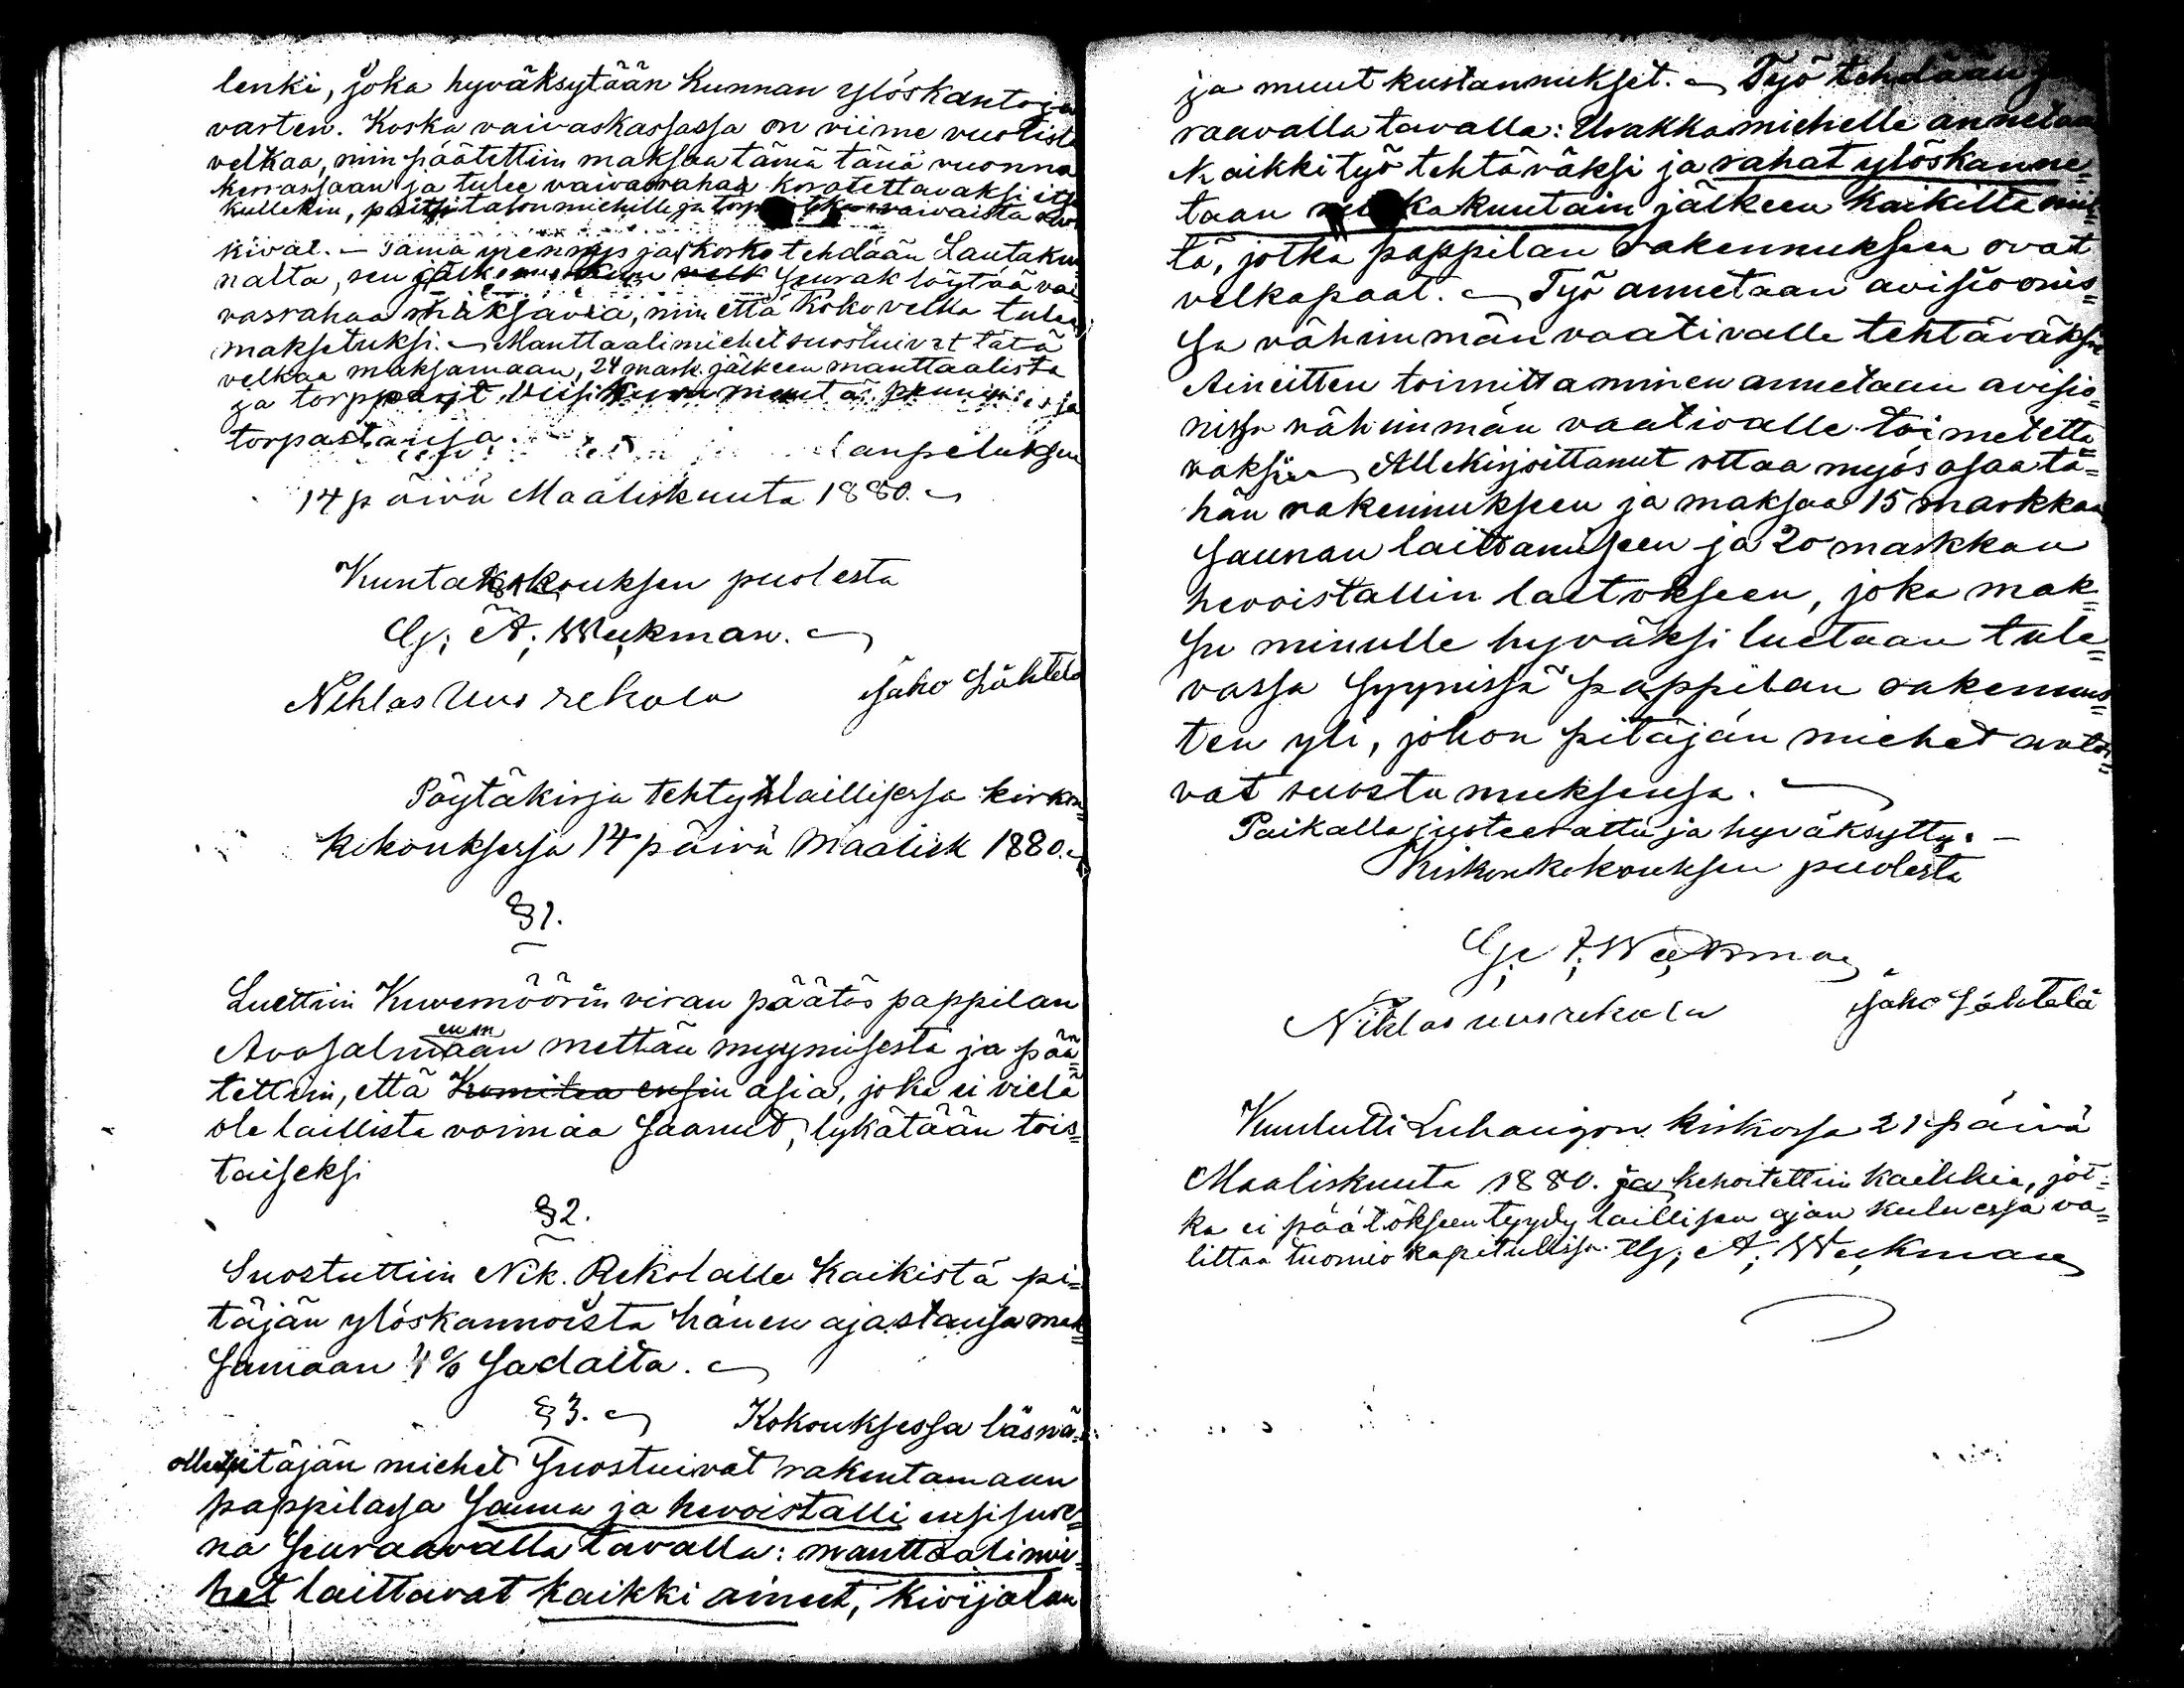 lenki, joka hyväksytään Kunnan ylöskantoja
varten. Koska vaivaskassassa on viime vuotista
velkaa, niin päätettiin maksaa tämä tänä vuonna
kerrassaan ja tulee vaivasrahat korotettavaksi
kullekin, paitsi talonmiehille ja
kivat. – Tämä ja korko tehdään Lautakun
nalta, sen seurak löytää vai
vasrahaa maksavia, niin että koko velka tulee
maksetuksi. – Manttaalimiehet suostuivat tätä
velkaa maksamaan, 24 mark. jälkeen manttaalista
ja torpparit
torpastansa.
14 päivä Maaliskuuta 1880. –
Kuntakokouksen puolesta
G; A; Weckman. –
Niklas Uusrekola Jako Lähtelä
Pöytäkirja tehty laillisessa kirkon
kokouksessa 14 päivä Maalisk 1880. –
§ 1.
Luettiin Kuvernöörin viran päätös pappilan
mettän myymisestä ja pää=
tettiin, että Komitea ensin asia, joka ei vielä
ole laillista voimaa saanut, lykätään tois=
taiseksi
§ 2.
Suostuttiin Nik. Rekolalle Kaikista pi=
täjän ylöskannoista hänen ajastansa mak=
samaan 4 % sadalta. –
§ 3. – Kokouksessa läsnä
olleet pitäjän miehet suostuivat rakentamaan
pappilassa sauna ja hevoistalli ensi suve=
na seuraavalla tavalla: manttaalimie=
het laittavat kaikki aineet, kivijalan
ja muut kustannukset. – Työ tehdään
raavalla tavalla: Urakkamiehelle annetaan
Kaikki työ tehtäväksi ja rahat ylöskanne=
taan jälkeen Kaikilta niil=
tä, jotka pappilan rakennukseen ovat
velkapaat. – Työ annetaan avisioonis=
sa vähimmän vaativalle tehtäväksi
Aineitten toimittaminen annetaan avisio=
nissa vähimmän vaativalle toimitetta
vaksi – Allekirjoittanut ottaa myös osaa tä=
hän rakennukseen ja maksaa 15 markkaa
saunan laittamiseen ja 20 markkaa
hevoistallin laitokseen, joka mak=
su minulle hyväksi luetaan tule=
vassa syynissä pappilan rakennus=
ten yli, johon pitäjän miehet antoi=
vat suostumuksensa. –
Paikalla justeerattu ja hyväksytty. –
Kirkonkokouksen puolesta
G; A; Weckman
Niklas uusrekola Jako Lähtelä
Kuulutti Luhangon kirkossa 21 päivä
Maaliskuuta 1880. ja kehoitettiin kaikkia, jot=
ka ei päätökseen tyydy laillisen ajan kuluessa va=
littaa tuomiokapitulissa. G; A; Weckman